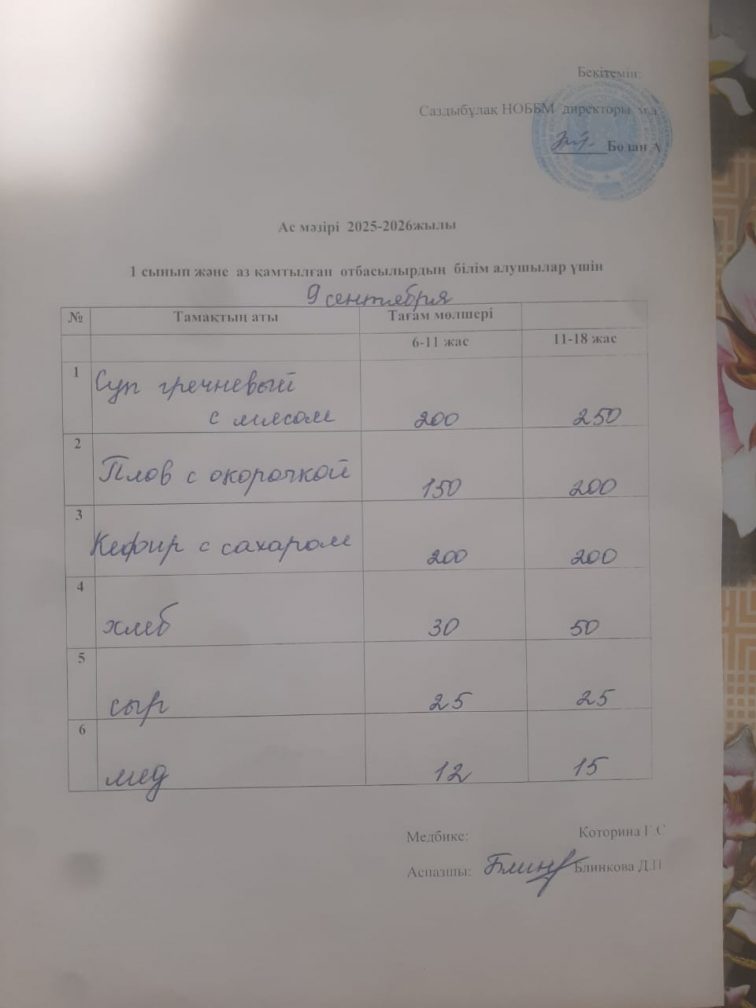 Бекітемін:
Саздыбұлақ НОББМ директоры м.а
Бозан А
Ас мәзірі 2025-2026жылы
1 сынып және аз қамтылған отбасылырдың білім алушылар үшін
9 сентября
№ Тамақтың аты Тағам мөлшері
6-11 жас 11-18 жас
1 Суп гречневый
с мясом 200 250
2 Плов с окорочкой 150 200
3 Кефир с сахаром 200 200
4 хлеб 30 50
5 сыр 25 25
6 мед 12 15
Медбике: Которина Г.С
Аспазшы: Блинкова Д.П